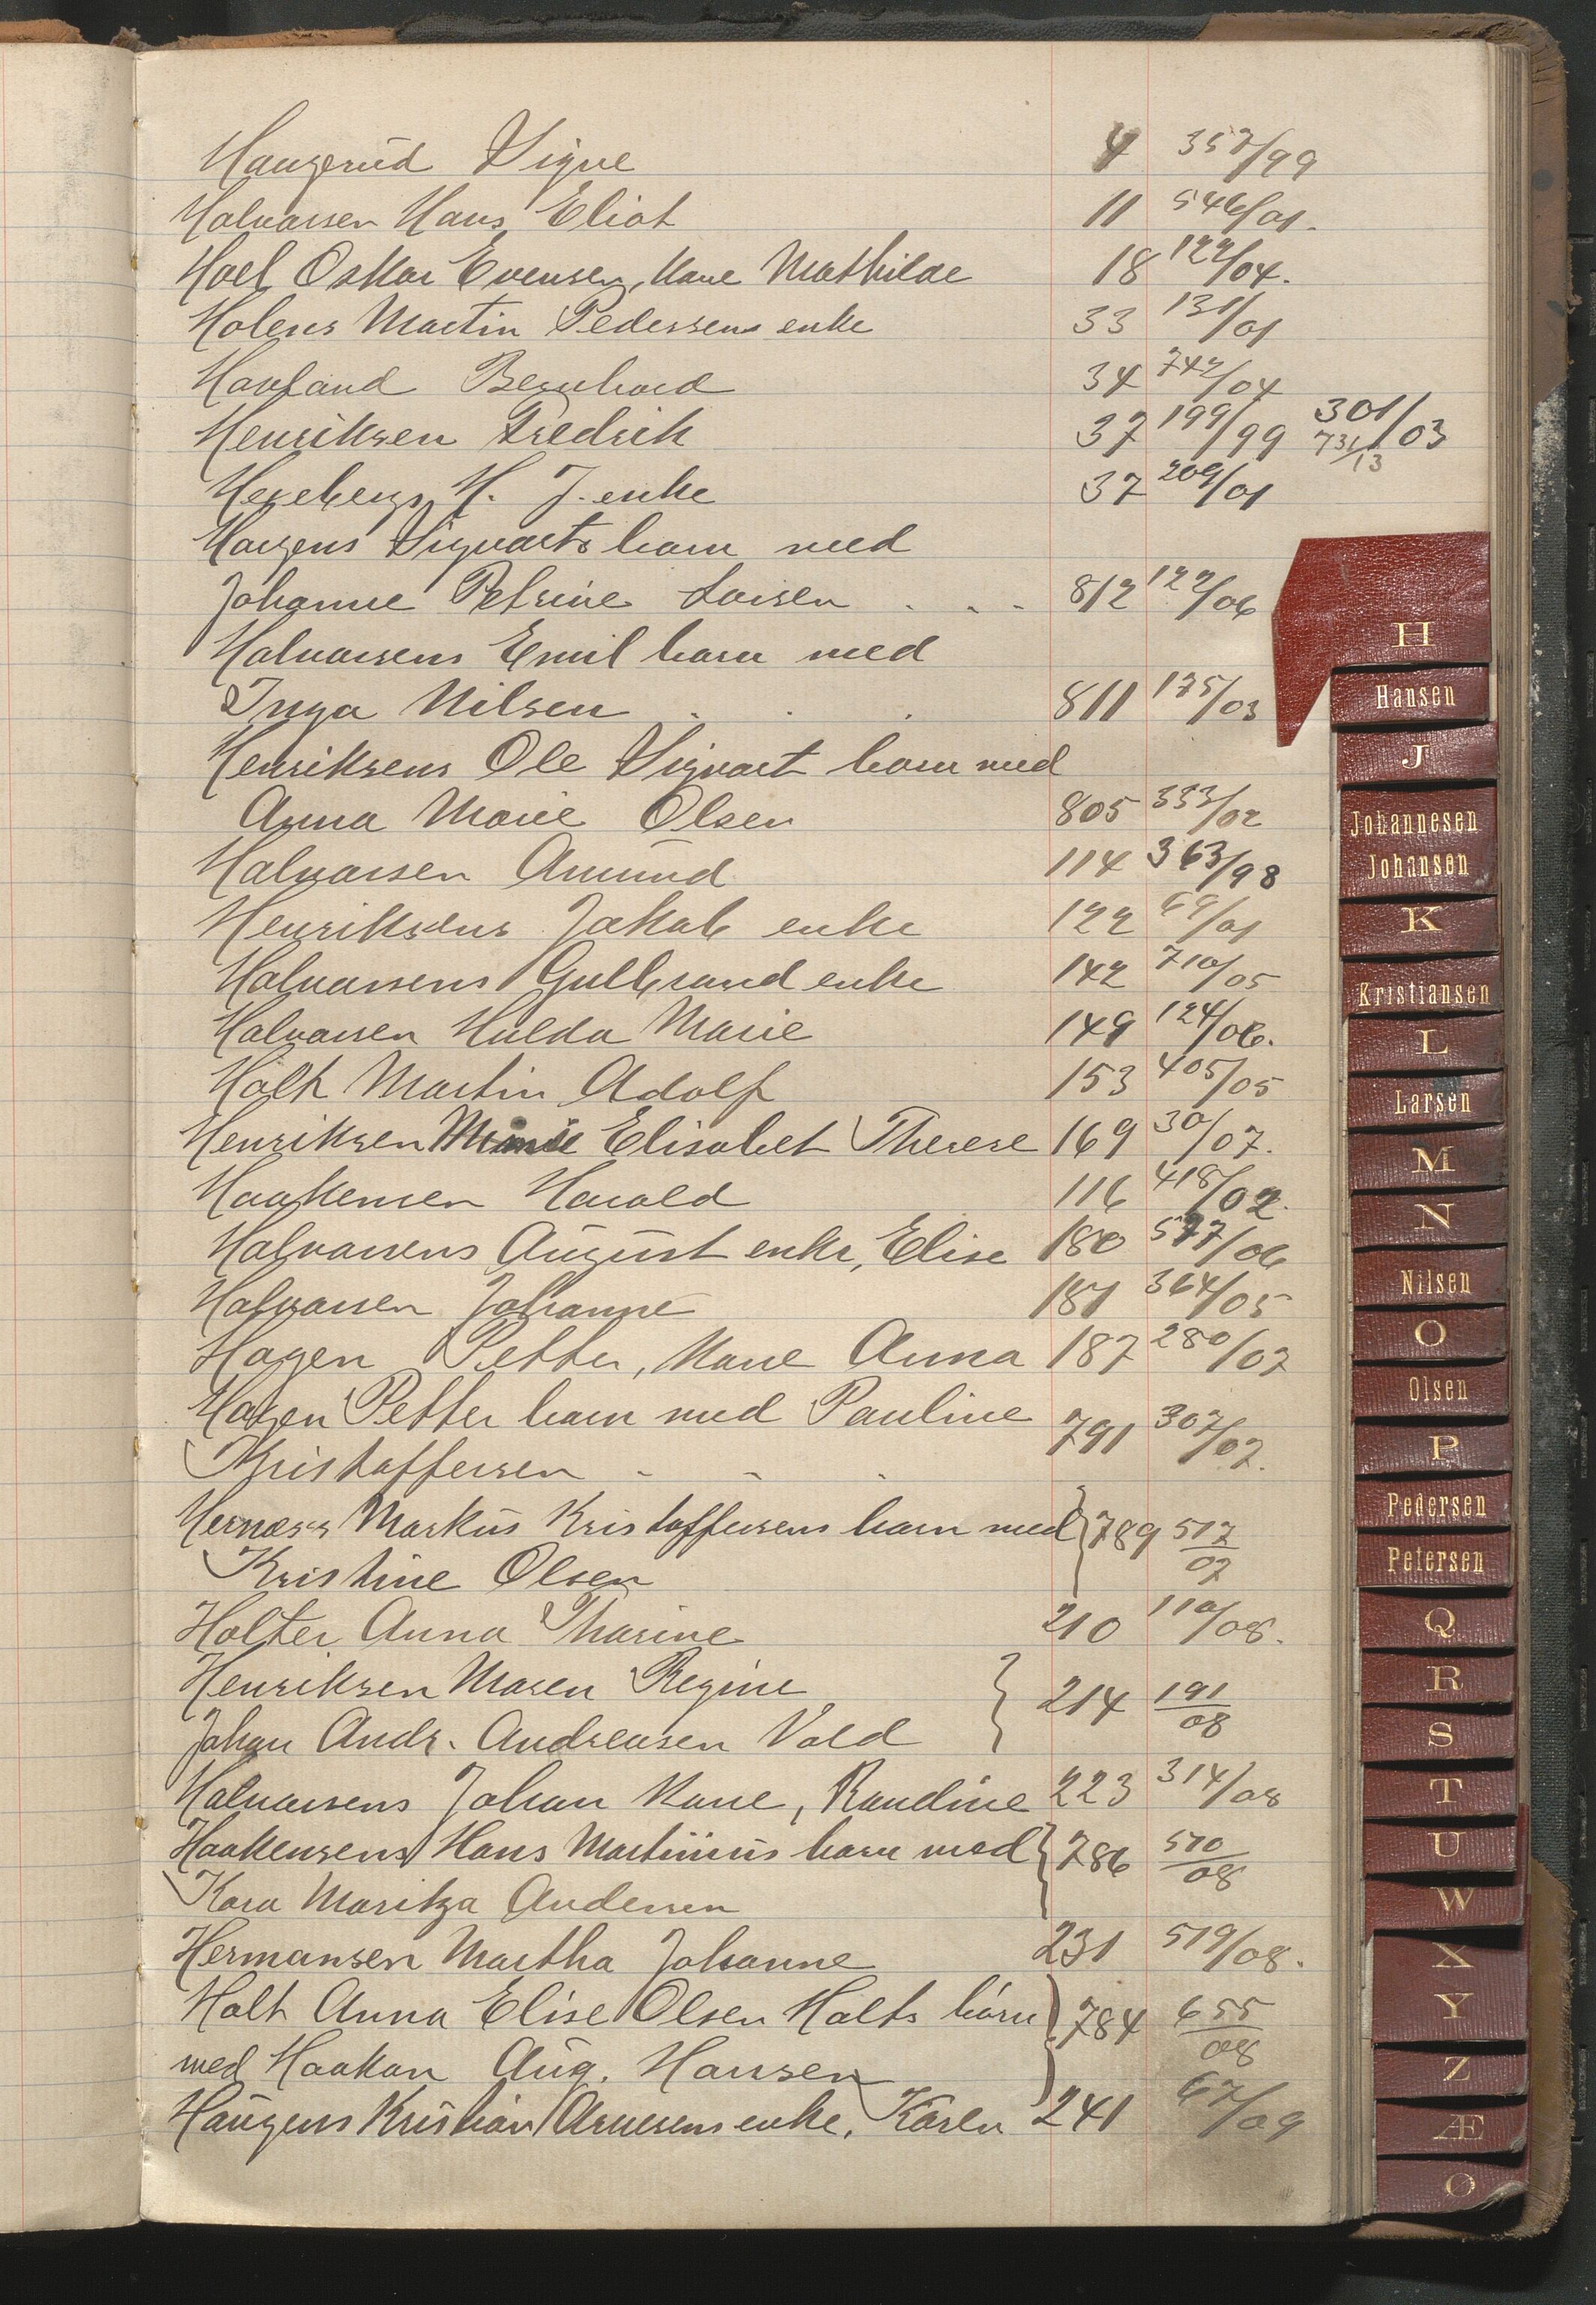 Haugerud Signe 4 357/99
Halvorsen Hans Eliot 11 546/01.
Hoel Oskar Evensen, Kone Mathilde 18 122/04.
Holens Martin Pedersens enke 33 131/01
Havland Bernhard 34 742/04
Henriksen Fredrik 37 199/99 301/03
731/13
Hexebergs H. J. enke 37 209/01
Haugens Sigvarts barn med
Johanne Petrine Larsen . . . 812 122/06
Halvorsens Emil barn med
Inga Nilsen . . . 811 175/03
Henriksens Ole Sigvart barn med
Anna Marie Olsen 805 333/02
Halvorsen Amund 114 363/98
Henriksens Jakob enke 122 69/01
Halvorsens Gulbrand enke 142 710/05
Halvorsen Hulda Marie 149 124/06.
Holt Martin Adolf 153 405/05
Henriksen Elisabet Therese 169 30/07.
Haakensen Harald 116 418/02.
Halvorsens August enke, Elise 180 577/06
Halvorsen Johanne 181 364/05
Hagen Petter, Kone Anna 187 280/07
Hagen Petter barn med Pauline 791 307/07.
Kristoffersen - - .
Hernæs's Markus Kristoffersens barn med } 789 517/07
Kristine Olsen
Holter Anna Tharine 210 110/08.
Henriksen Maren Regine } 214 191/08
Johan Andr. Andreasen Vold
Halvorsens Johan Kone, Randine 223 314/08
Haakensens Hans Martinius barn med } 786 510/08
Kara Maritza Andersen
Hermansen Martha Johanne 231 519/08.
Holt Anna Elise Olsen Holts barn } 784 655/08
med Haakon Aug. Hansen
Haugens Kristian Arnesens enke, Karen 241 67/09
H
Hansen
J
Johannesen
Johansen
K
Kristiansen
L
Larsen
M
N
Nilsen
O
Olsen
P
Pedersen
Petersen
Q
R
S
T
U
W
X
Y
Z
Æ
Ø